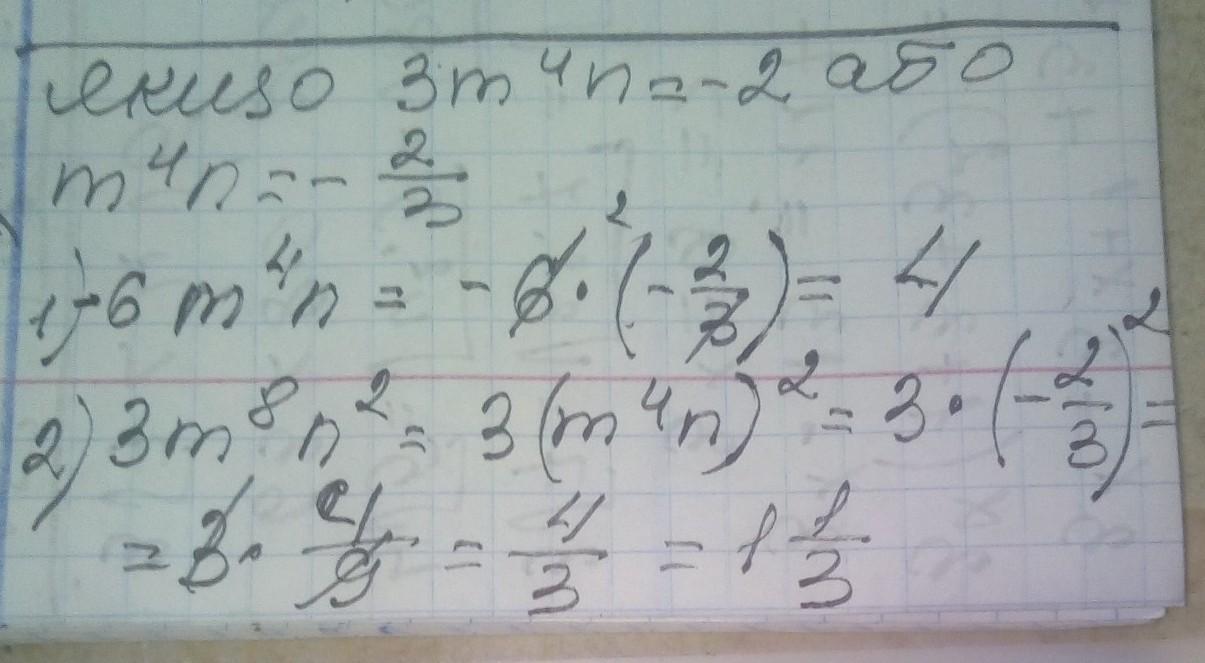 якщо 3m⁴n = -2 або
m⁴n = - 2/3
1) -6m⁴n = - 6² · (- 2/3) = 4
2) 3m⁸n² = 3(m⁴n)² = 3 · (- 2/3)² =
= 3 · 4/9 = 4/3 = 1 1/3